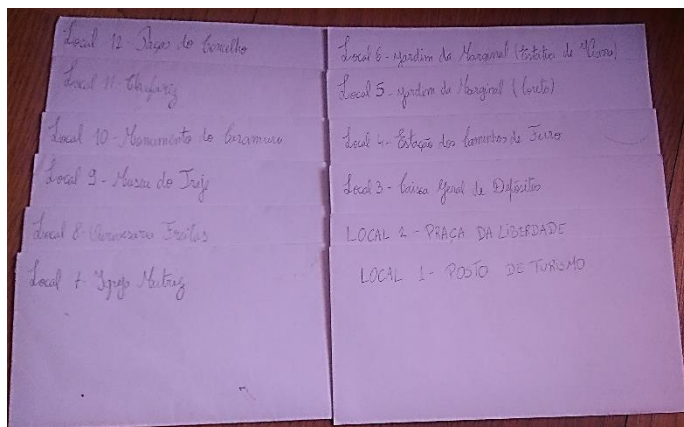 Local 12 - Paços do Concelho
Local 11 - Chafariz
Local 10 - Monumento do Caramuru
Local 9 - Museu do Traje
Local 8 - Ourivesaria Freitas
Local 7 - Igreja Matriz
Local 6 - Jardim da Marginal (Estátua de Viana)
Local 5 - Jardim da Marginal (Coreto)
Local 4 - Estação dos Caminhos de Ferro
Local 3 - Caixa Geral de Depósitos
LOCAL 2 - PRAÇA DA LIBERDADE
LOCAL 1 - POSTO DE TURISMO